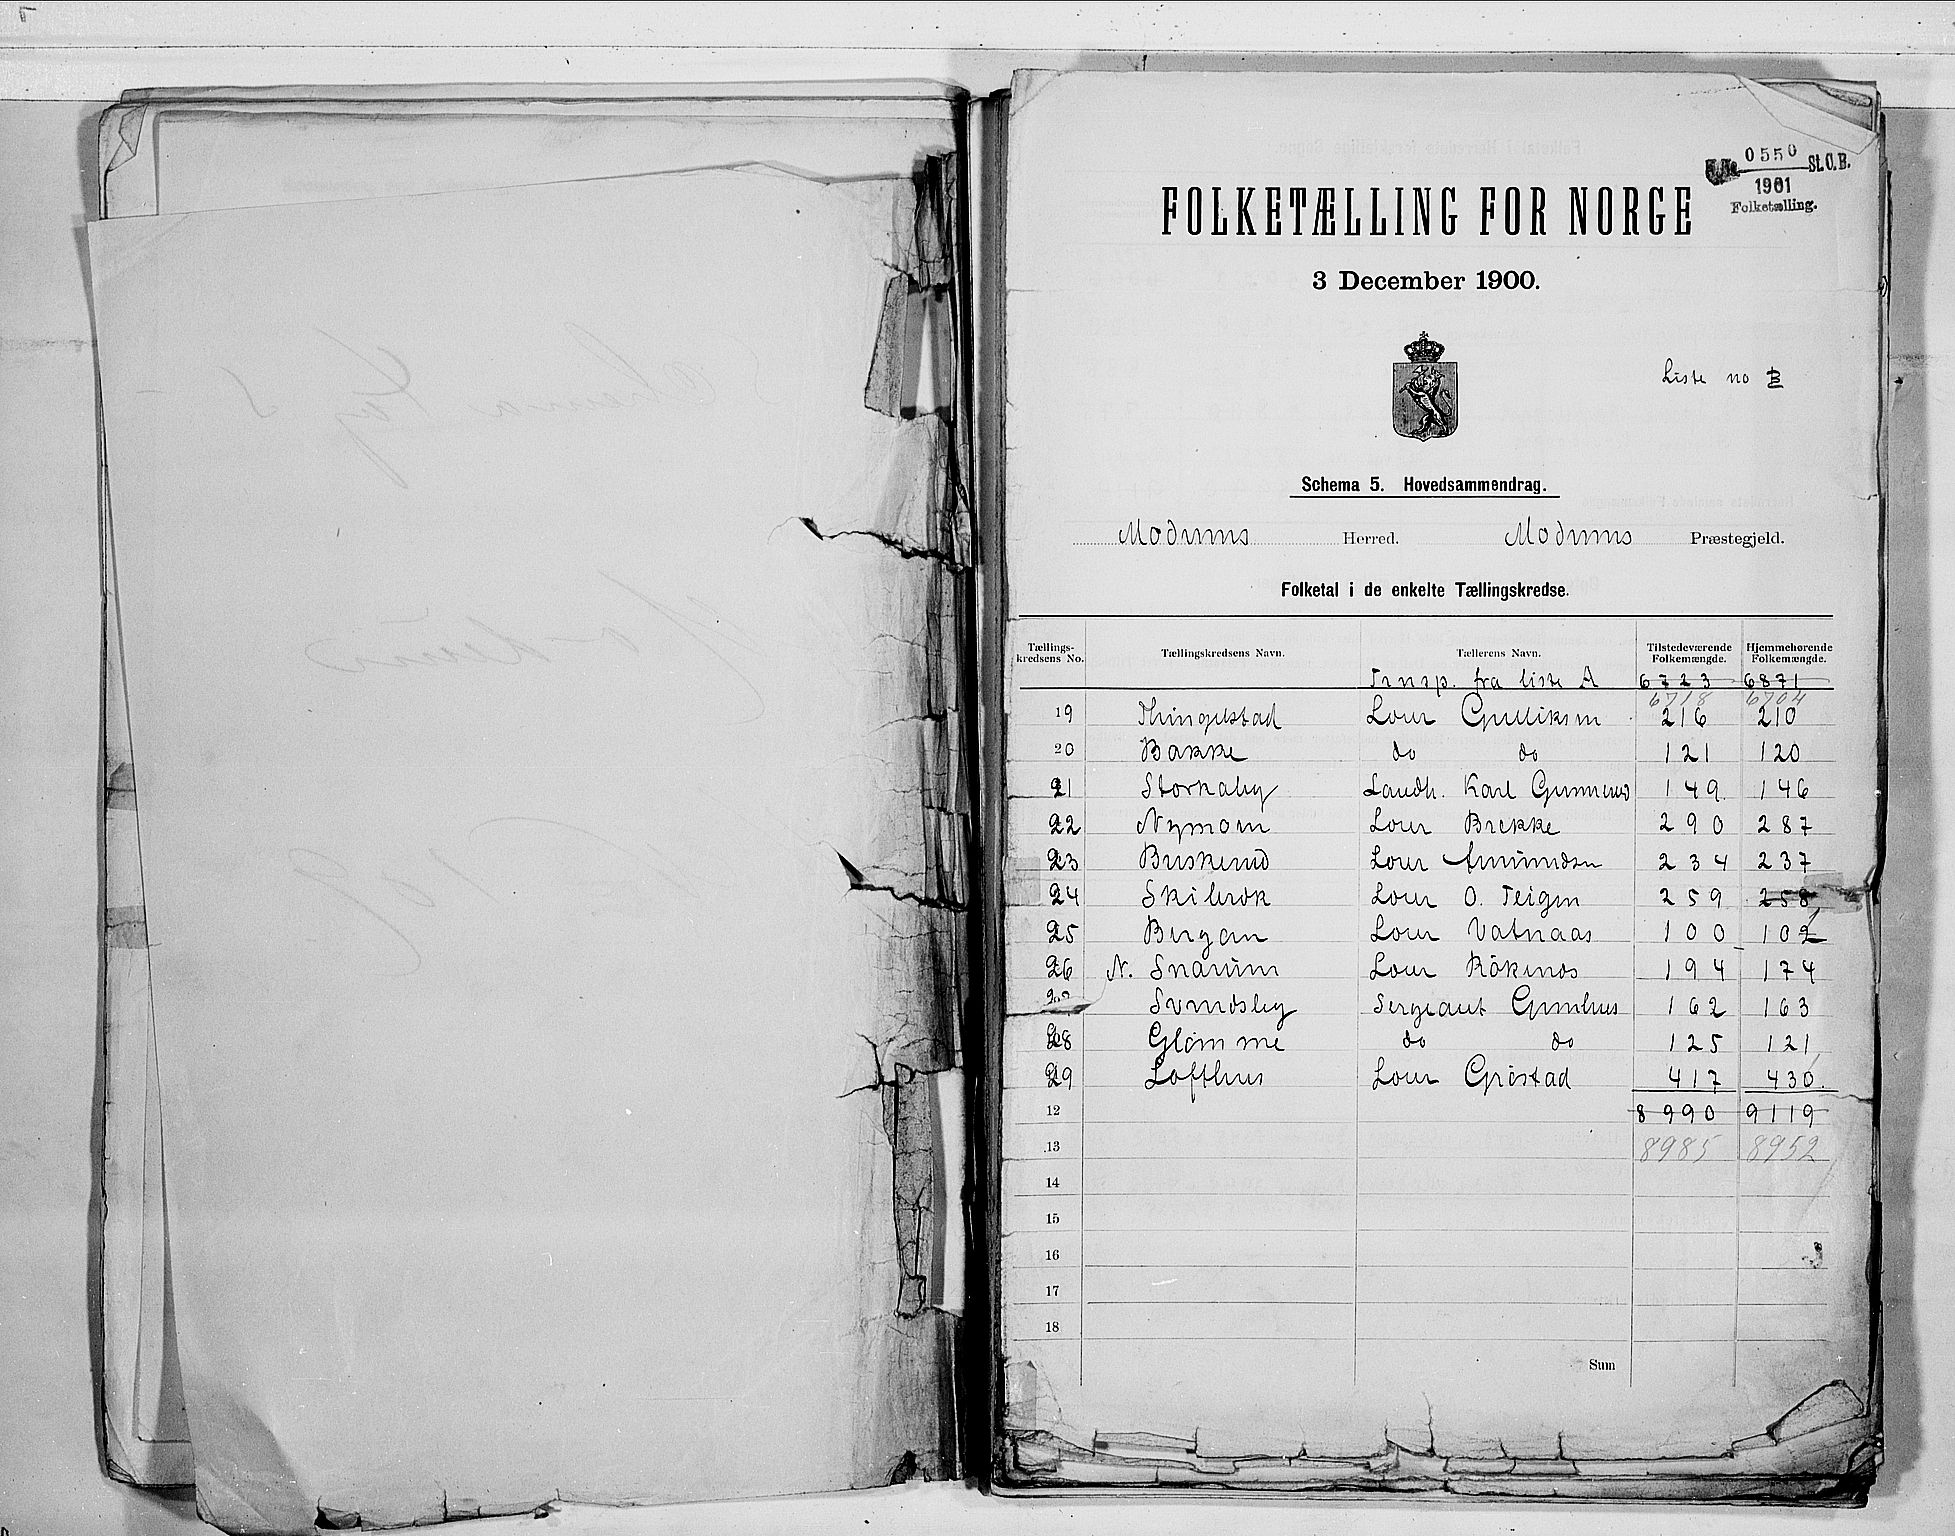 0550 St.C.B.
1901
Folketælling.
FOLKETÆLLING FOR NORGE
3 December 1900.
Liste no B
Schema 5. Hovedsammendrag.
Modums Herred. Modums Præstegjeld.
Folketal i de enkelte Tællingskredse.
Tællings-kredsens No. Tællingskredsens Navn. Tællerens Navn. Tilstedeværende Folkemængde. Hjemmehørende Folkemængde.
Transp. fra liste A 6723 6871
6718 6704
19 Thingelstad Lærer Gulliksen 216 210
20 Bakke do do 121 120
21 Landh. Karl 149 146
22 Nymoen Lærer Brekke 290 287
23 Buskerud Lærer Amundsen 234 237
24 Skibrek Lærer O. Teigen 259 258
25 Bergan Lærer Vatnaas 100 102
26 N. Snarum Lærer Rökenes 194 174
Svendsby Sergeant 162 163
28 Glømme do do 125 121
29 Lofthus Lærer Gröstad 417 430
12 8990 9119
13 8985 8952
14
15
16
17
18
Sum